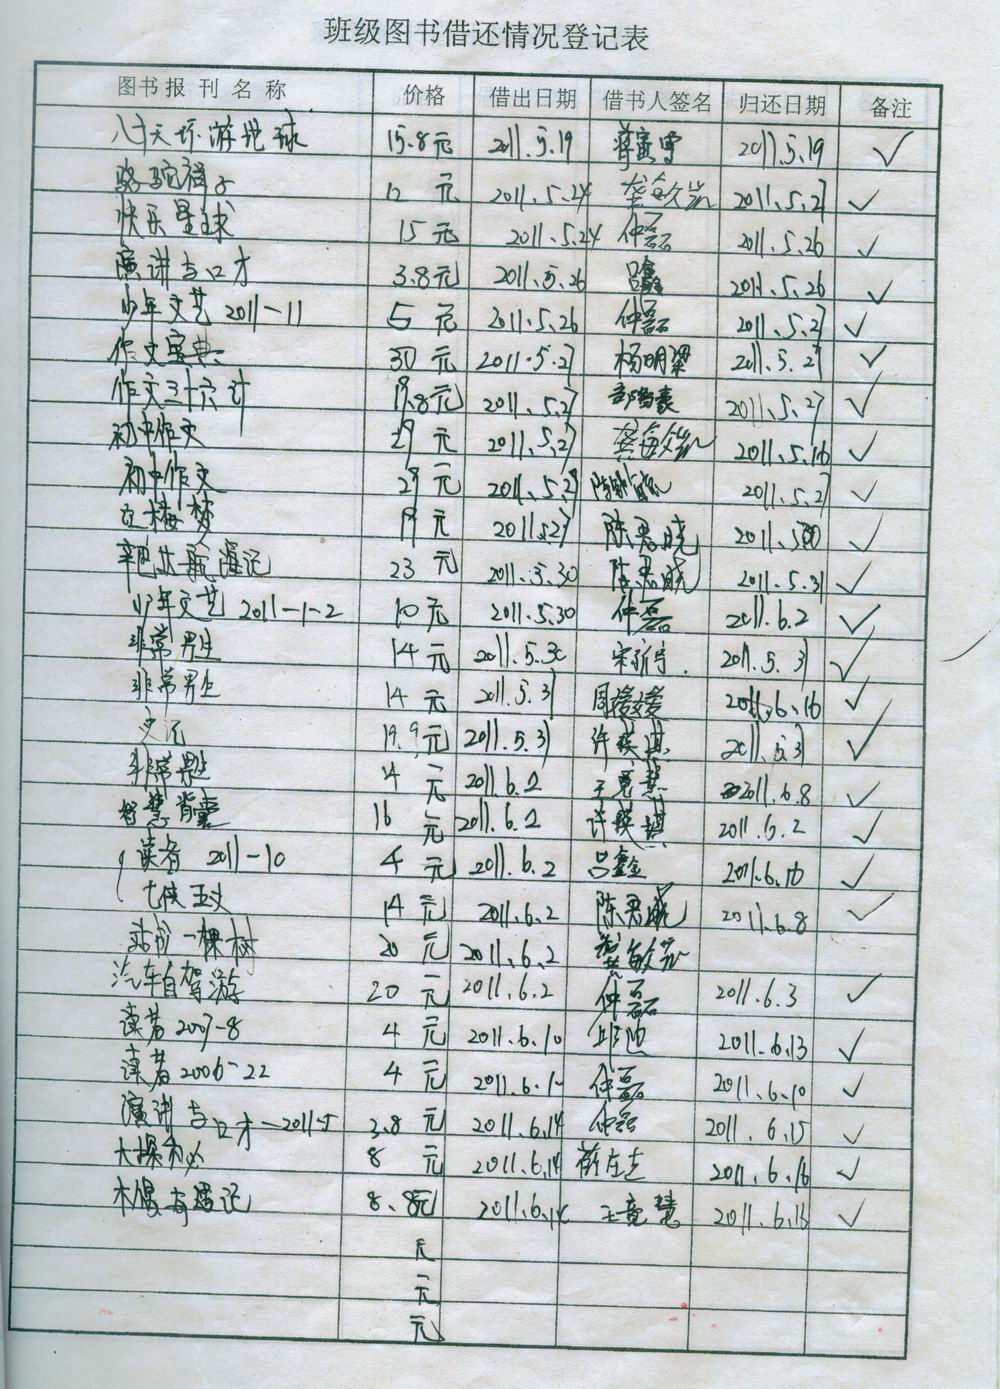 班级图书借还情况登记表
图书报刊名称 价格 借出日期 借书人签名 归还日期 备注
八十天环游地球 15.8元 2011.5.19 2011.5.19 ✓
骆驼祥子 12元 2011.5.24 龚敏凯 2011.5.27 ✓
快乐星球 15元 2011.5.24 仲磊 2011.5.26 ✓
演讲与口才 3.8元 2011.5.26 吕鑫 2011.5.26 ✓
少年文艺 2011-11 5元 2011.5.26 仲磊 2011.5.27 ✓
作文宝典 30元 2011.5.27 杨明梁 2011.5.27 ✓
作文三十六计 19.8元 2011.5.27 2011.5.27 ✓
初中作文 29元 2011.5.27 龚敏凯 2011.5.16 ✓
初中作文 29元 2011.5.27 2011.5.27 ✓
红楼梦 19元 2011.5.27 陈君晓 2011.5.30 ✓
辛巴达航海记 23元 2011.5.30 陈君晓 2011.5.31 ✓
少年文艺 2011-1-2 10元 2011.5.30 仲磊 2011.6.2 ✓
非常男生 14元 2011.5.30 宋 2011.5.31 ✓
非常男生 14元 2011.5.31 周媛媛 2011.6.16 ✓
史记 19.9元 2011.5.31 许瑛琪 2011.5.31 ✓
非常男生 14元 2011.6.2 王竟慧 2011.6.8 ✓
智慧背囊 16元 2011.6.2 许瑛琪 2011.6.2 ✓
读者 2011-10 4元 2011.6.2 吕鑫 2011.6.10 ✓
七侠五义 14元 2011.6.2 陈君晓 2011.6.8 ✓
站成一棵树 20元 2011.6.2 龚敏凯
汽车自驾游 20元 2011.6.2 仲磊 2011.6.3 ✓
读者 2007-8 4元 2011.6.10 2011.6.13 ✓
读者 2006-22 4元 2011.6.10 仲磊 2011.6.10 ✓
演讲与口才—2011-5 3.8元 2011.6.14 仲磊 2011.6.15 ✓
大探奥秘 8元 2011.6.14 2011.6.16 ✓
木偶奇遇记 8.8元 2011.6.14 王竟慧 2011.6.16 ✓
元
元
元